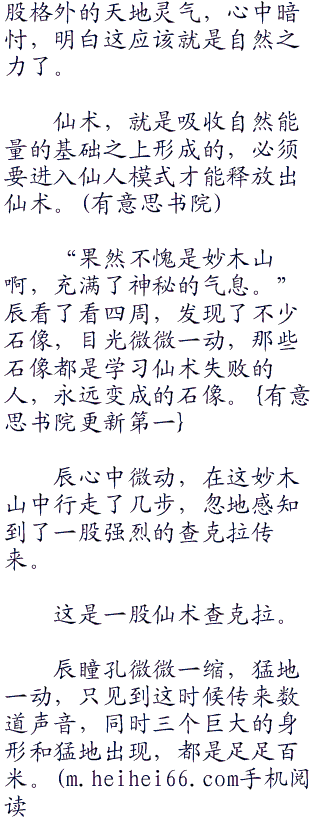 股格外的天地灵气，心中暗
忖，明白这应该就是自然之
力了。
仙术，就是吸收自然能
量的基础之上形成的，必须
要进入仙人模式才能释放出
仙术。(有意思书院)
“果然不愧是妙木山
啊，充满了神秘的气息。”
辰看了看四周，发现了不少
石像，目光微微一动，那些
石像都是学习仙术失败的
人，永远变成的石像。{有意
思书院更新第一}
辰心中微动，在这妙木
山中行走了几步，忽地感知
到了一股强烈的查克拉传
来。
这是一股仙术查克拉。
辰瞳孔微微一缩，猛地
一动，只见到这时候传来数
道声音，同时三个巨大的身
形和猛地出现，都是足足百
米。(m.heihei66.com手机阅
读